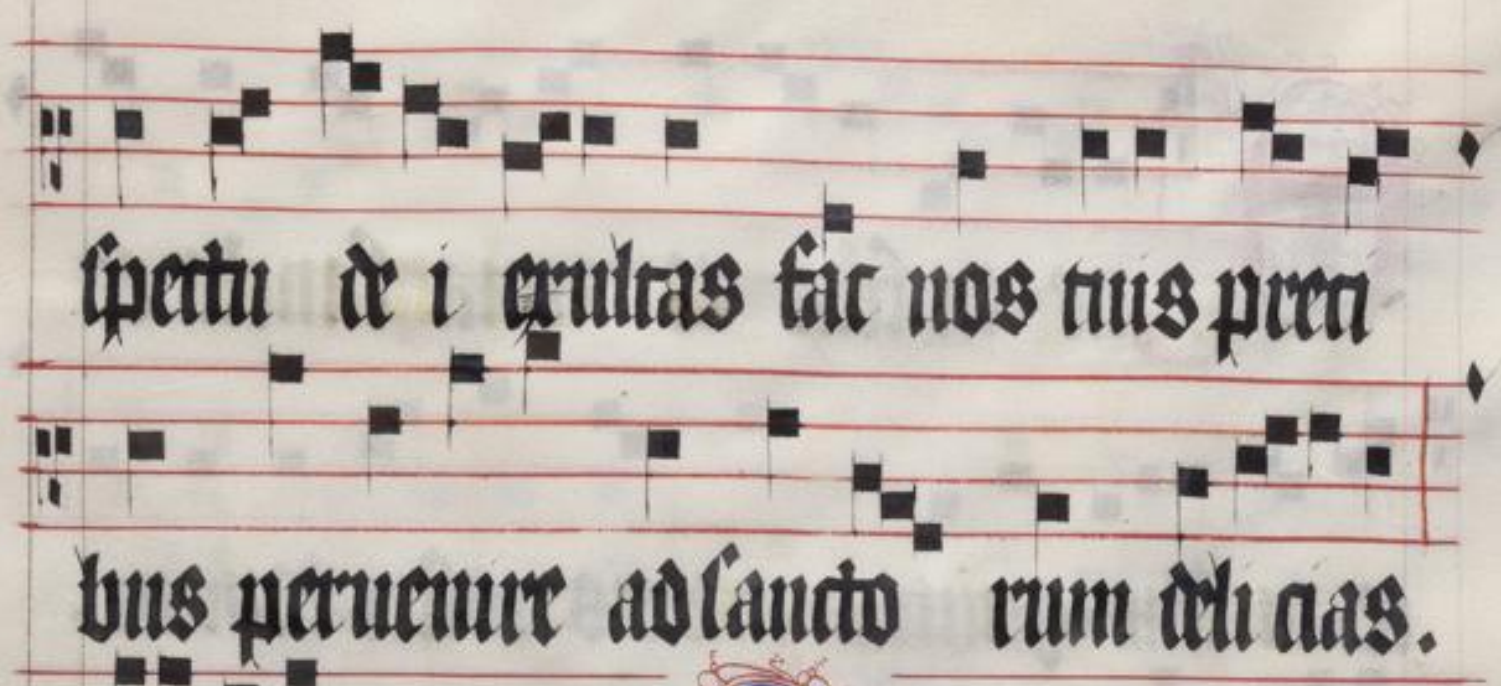 spectu de i exultas fac nos tuis preci
bus peruenire ad sancto rum deli cias.